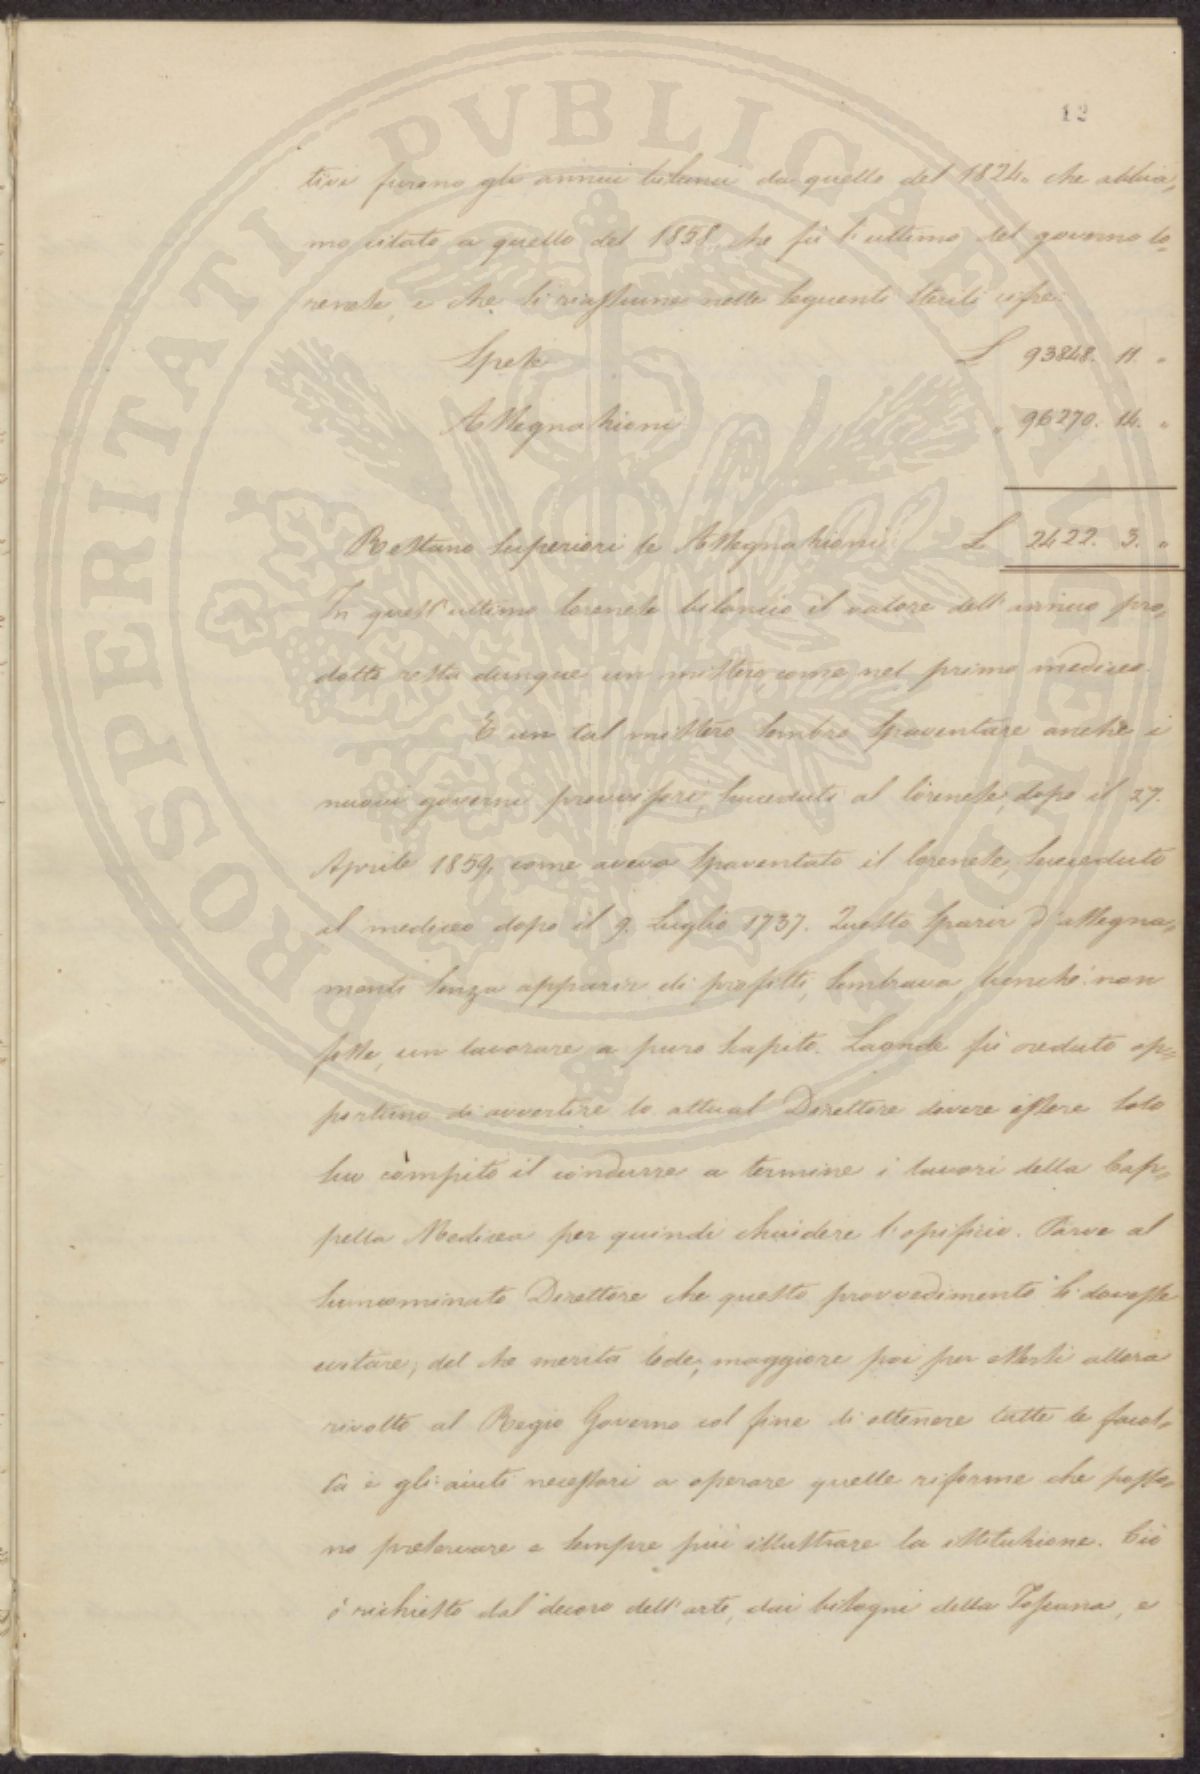 12
tivi furono gli annui bilanci da quello del 1824. che abbia,,
mo citato a quello del 1858, che fù l'ultimo del governo lo=
renese, e che si riassume nelle seguenti sterili cifre:
Spese L 93848. 11. "
Assegnazioni " 96270. 14. "
Restano superiori le Assegnazioni L 2422. 3. "
In quest'ultimo lorenese bilancio il valore dell'annuo pro,,
dotto resta dunque un mistero, come nel primo mediceo.
E un tal mistero sembrò spaventare anche i
nuovi governi provvisori, succeduti al lorenese, dopo il 27.
Aprile 1859, come aveva spaventato il lorenese, succeduto
al mediceo dopo il 9. Luglio 1737. Questo sparir d'assegna,,
menti senza apparir di profitti, sembrava, benchè non
fosse, un lavorare a puro scapito. Laonde fù creduto op,,
portuno di avvertire lo attual Direttore dovere essere solo
suo còmpito il condurre a termine i lavori della Cap,,
pella Medicea per quindi chiudere l'opificio. Parve al
sunnominato Direttore che questo provvedimento si dovesse
evitare; del che merita lode; maggiore poi per essersi allora
rivolto al Regio Governo col fine di ottenere tutte le facol,,
tà e gli aiuti necessari a operare quelle riforme che posso,,
no preservare e sempre più illustrare la istituzione. Ciò
è richiesto dal decoro dell'arte, dai bisogni della Toscana, e
PROSPERITATI PVBLICAE AVGENDAE